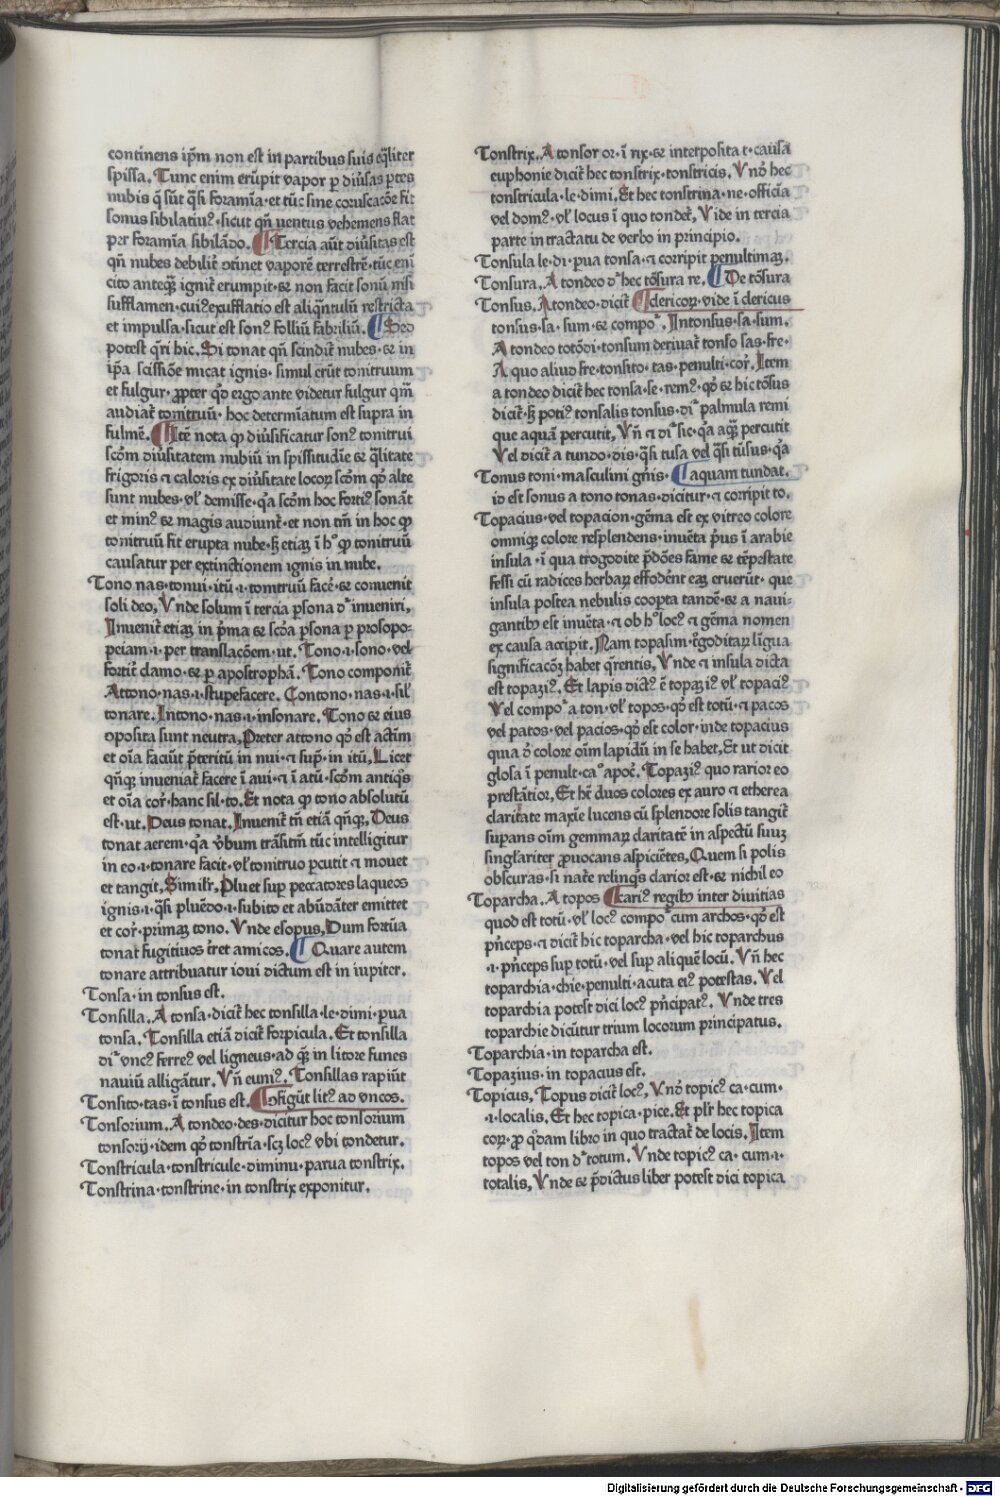 continens ip̄m non est in partibus suis eq̄liter
spissa. Tunc enim erūpit vapor p diūsas p̄tes
nubis q̄ sūt q̄si foramīa · et tūc sine coruscacōe fit
sonus sibilatiuꝰ · sicut qn̄ uentus vehemens flat
per foramīa sibilādo. ¶ Tercia aūt diūsitas est
qn̄ nubes debilit̄ ↄtinet vaporē terrestrē · tūc enī
cito anteqȝ ignit̄ erumpit · ⁊ non facit sonū nisi
sufflamen · cuiꝰ exufflatio est aliq̄ntulū restricta
et impulsa · sicut est sonꝰ folliū fabriliū. ¶ Sed
potest q̄ri hic. Si tonat qn̄ scindit̄ nubes · ⁊ in
ip̄a scissiōe micat ignis · simul erūt tonitruum
et fulgur · ꝓpter qͦd ergo ante videtur fulgur qm̄
audiat̄ tonitruū · hoc determīatum est supra in
fulmē. ¶ Itē nota ꝙ diūsificatur sonꝰ tonitrui
scd̄m diūsitatem nubiū in spissitudīe ⁊ q̄litate
frigoris ⁊ caloris ex diūsitate locoꝝ scd̄m qͦd alte
sunt nubes · vl̓ demisse · qͣa scd̄m hoc fortiꝰ sonāt
et minꝰ ⁊ magis audiunt̄ · et non tm̄ in hoc ꝙ
tonitruū fit erupta nube · sꝫ etiaꝫ ī hͦ ꝙ tonitruū
causatur per extinctionem ignis in nube.
Tono nas · tonui · itū · i · tonitruū facē · ⁊ conuenit
soli deo, Vnde solum ī tercia p̱sona dꝫ inueniri,
Inuenit̄ etiaꝫ in p̄ma ⁊ scd̄a p̱sona p prosopo-
peiam · i · per translacōem · ut. Tono · i · sono · vel
fortit̄ clamo · ⁊ p apostrophā. Tono componit̄
Attono · nas · i · stupefacere. Contono · nas · i · sil̓
tonare. Intono · nas · i · insonare. Tono ⁊ eius
ↄposita sunt neutra, Preter attono qͦd est actiū
et oīa faciūt p̄teritū in nui · ⁊ sup̄ · in itū, Licet
qn̄qȝ inueniat̄ facere ī aui · ⁊ ī atū · scd̄m antiqͦs
et oīa cor̄ · hanc sil · to. Et nota ꝙ tono absolutū
est · ut. Deus tonat. Inuenit̄ tn̄ etiā qn̄qȝ, Deus
tonat aerem · qͣa v̄bum trāsitm̄ tūc intelligitur
in eo · i · tonare facit · vl̓ tonitruo p̱cutit ⁊ mouet
et tangit, Similr̄, Pluet sup̱ peccatores laqueos
ignis · i · q̄si pluēdo · i · subito et abūdāter emittet
et cor̄ · primaꝫ tono. Vnde esopus, Dum fortūa
tonat fugitiuos t̄ret amicos. ¶ Quare autem
tonare attribuatur ioui dictum est in iupiter.
Tonsa · in tonsus est.
Tonsilla. A tonsa · dicit̄ hec tonsilla · le · dimi · pua
tonsa. Tonsilla etiā dicit̄ forpicula. Et tonsilla
dꝫ vncꝰ ferreꝰ vel ligneus · ad qͣꝫ in litore funes
nauiū alligātur. Vn̄ enniꝰ. Tonsillas rapiūt
Tonsito · tas · ī tonsus est. ¶ ↄfigūt litꝰ ad vncos.
Tonsorium. A tondeo · des · dicitur hoc tonsorium
tonsorij · idem qͦd tonstrīa · scꝫ locꝰ vbi tondetur.
Tonstricula · tonstricule · diminu · parua tonstrix.
Tonstrina · tonstrine · in tonstrix exponitur.
Tonstrix. A tonsor or · ī rix · ⁊ interposita t · causa
euphonie dicit̄ hec tonstrix · tonstricis. Vnͦ hec
tonstricula · le · dimi. Et hec tonstrina · ne · officīa
vel domꝰ · vl̓ locus ī quo tondet̄, Vide in tercia
parte in tractatu de verbo in principio.
Tonsula · le · di · pua tonsa · ⁊ corripit penultimaꝫ.
Tonsura. A tondeo dꝫ hec tōsura re. ¶ De tōsura
Tonsus, A tondeo · dicit̄ ¶ clericoꝝ · vide ī clericus
tonsus · sa · sum · ⁊ compoꝫ. Intonsus · sa · sum.
A tondeo totōdi · tonsum deriuat̄ tonso sas · fre ·
A quo aliud fre · tonsito · tas · penulti · cor̄. Item
a tondeo dicit̄ hec tonsa · se · remꝰ · qͦd ⁊ hic tōsus
dicit̄ · sꝫ potiꝰ tonsalis tonsus · dꝫ palmula remi
que aquā percutit, Vn̄ ⁊ dꝫ sic · qͣa aquā percutit
Vel dicit̄ a tundo · dis · q̄si tusa vel q̄si tūsus · qͣa
Tonus toni · masculini gn̄is. ¶ aquam tundat.
id est sonus a tono tonas · dicitur · ⁊ corripit to.
Topacius · vel topacion · gēma est ex vitreo colore
omniqȝ colore resplendens · inuēta p̄us ī arabie
insula · ī qua trogodite p̄dōes fame ⁊ tēpestate
fessi cū radices herbaꝝ effodēnt eaꝫ eruerūt · que
insula postea nebulis coopta tandē · ⁊ a naui-
gantibꝰ est inuēta · ⁊ ob hͦ locꝰ ⁊ gēma nomen
ex causa accipit. Nam topasim · t̄goditaꝝ līgua
significacōꝫ habet q̄rentis, Vnde ⁊ insula dicta
est topaziꝰ. Et lapis dictꝰ ē topaziꝰ vl̓ topaciꝰ
Vel compoꝫ a ton · vl̓ topos · qͦd est totū · ⁊ pacos
vel patos · vel pacios · qͦd est color · inde topacius
quia ō colore oīm lapidū in se habet, Et ut dicit
glosa ī penult · caꝫ apoc̄. Topaziꝰ quo rarior eo
prestātior, Et hꝫ duos colores ex auro ⁊ etherea
claritate maxīe lucens cū splendore solis tangit̄
sup̱ans oīm gemmaꝝ claritatē in aspectū suuꝫ
singl̓ariter ꝓuocans aspiciētes, Quem si polis
obscuras · si nat̄e relinqͦs clarior est · ⁊ nichil eo
Toparcha. A topos ¶ cariꝰ regibꝰ inter diuitias
quod est totū · vl̓ locꝰ compoꝫ cum archos · qͦd est
p̄nceps · ⁊ dicit̄ hic toparcha · vel hic toparchus
· i · p̄nceps sup̱ totū · vel sup̱ aliquē locū. Vn̄ hec
toparchia · chie · penulti · acuta eiꝰ potestas. Vel
toparchia potest dici locꝰ p̄ncipatꝰ. Vnde tres
toparchie dicūtur trium locorum principatus.
Toparchia · in toparcha est.
Topazius · in topacius est.
Topicus, Topus dicit̄ locꝰ, Vnͦ topicꝰ ca · cum ·
· i · localis. Et hec topica · pice. Et plr̄ hec topica
coꝝ · ꝓ qͦdam libro in quo tractat̄ de locis. Item
topos vel ton dꝫ totum. Vnde topicꝰ ca · cum · i ·
totalis, Vnde ⁊ p̄dictus liber potest dici topica
Digitalisierung gefördert durch die Deutsche Forschungsgemeinschaft - DFG